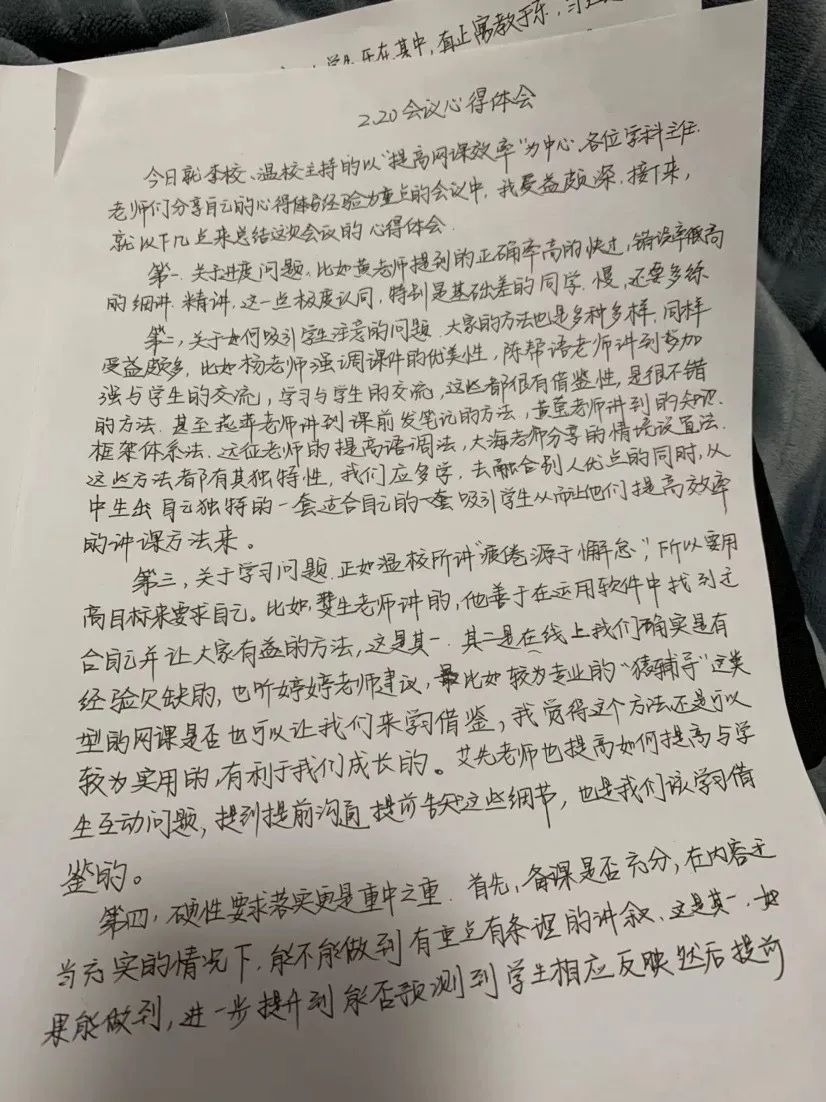 学生乐在其中,真正寓教于乐,
2.20会议心得体会
今日就李校、温校主持的以"提高网课效率"为中心,各位学科主任.
老师们分享自己的心得体会经验为重点的会议中,我受益颇深.接下来,
就以下几点来总结这次会议的心得体会.
第一.关于进度问题,比如黄老师提到的正确率高的快过,错误率很高
的细讲.精讲,这一点极度认同,特别是基础差的同学.慢,还要多练
第二,关于如何吸引学生注意的问题.大家的方法也是多种多样,同样
受益颇多,比如杨老师强调课件的优美性,陈帮语老师讲到多加
强与学生的交流,学习与学生的交流,这些都很有借鉴性,是很不错
的方法.甚至燕萍老师讲到课前发笔记的方法,黄董老师讲到的知识.
框架体系法.远征老师的提高语调法,大海老师分享的情境设置法.
这些方法都有其独特性,我们应多学,去融合别人优点的同时,从
中生出自己独特的一套适合自己的一套吸引学生从而让他们提高效率
的讲课方法来。
第三,关于学习问题.正如温校所讲"疲倦源于懈怠",所以要用
高目标来要求自己。比如,老师讲的,他善于在运用软件中找到适
合自己并让大家有益的方法,这是其一.其二是在线上我们确实是有
经验欠缺的,也听婷婷老师建议,比如较为专业的"猿辅导"这类
型的网课是否也可以让我们来学习借鉴,我觉得这个方法还是可以
较为实用的,有利于我们成长的。艾先老师也提高如何提高与学
生互动问题,提到提前沟通,提前告知这些细节,也是我们该学习借
鉴的。
第四,硬性要求落实更是重中之重.首先,备课是否充分,在内容适
当充实的情况下,能不能做到有重点有条理的讲叙、这是其一.如
果能做到,进一步提升到能否预测到学生相应反映然后提前